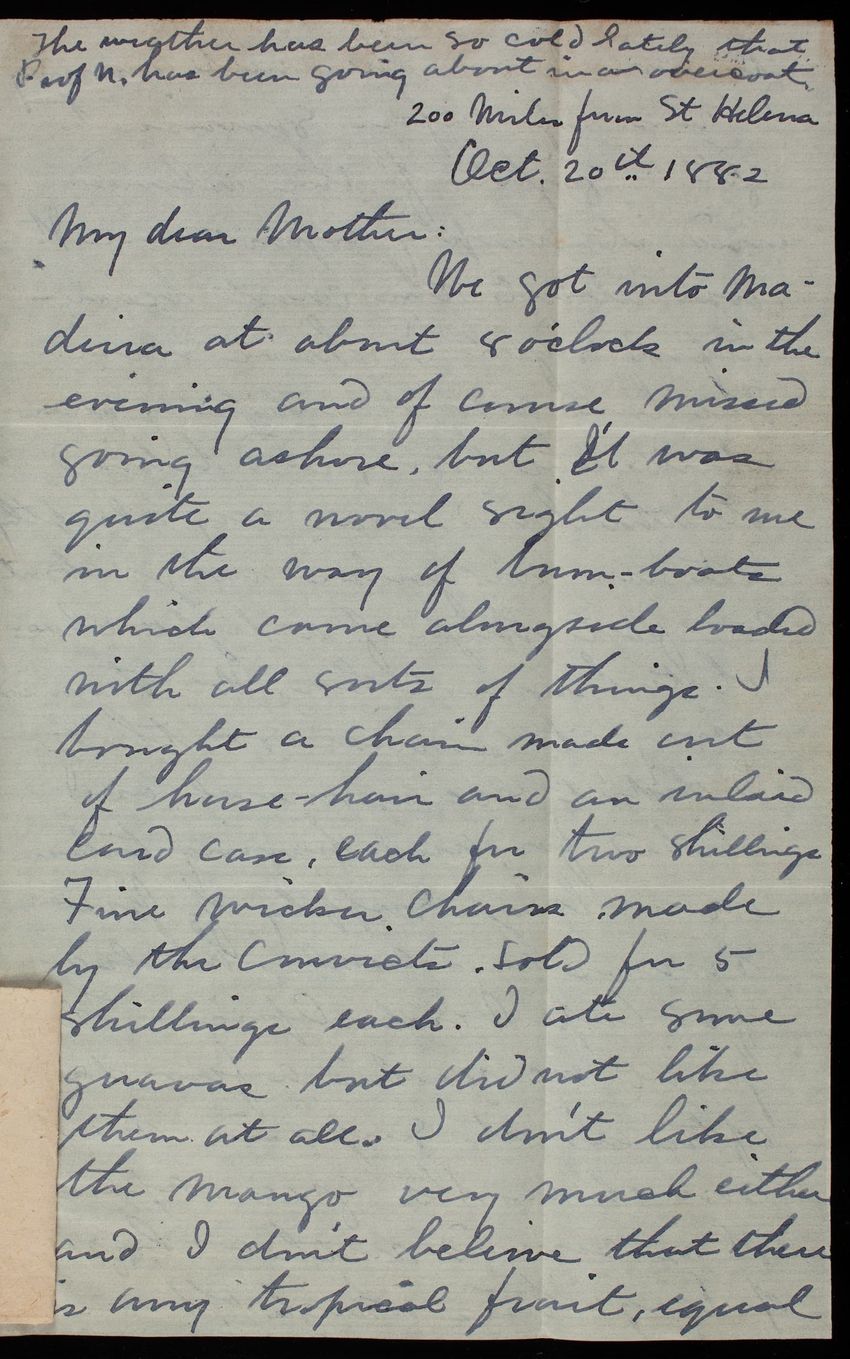 The weather has been so cold lately that
Prof N. has been going about in an overcoat.
200 Miles from St Helena
Oct. 20th 1882
My dear Mother:
We got into Ma-
deira at about 8 o'clock in the
evening and of course missed
going ashore, but it was
quite a novel sight to me
in the way of bum-boats
which came alongside loaded
with all sorts of things. I
bought a chain made out
of horse-hair and an inlaid
card case, each for two shillings
Fine wicker chairs made
by the convicts sold for 5
shillings each. I ate some
guavas but did not like
them at all. I don't like
the mango very much either
and I don't believe that there
is any tropical fruit, equal